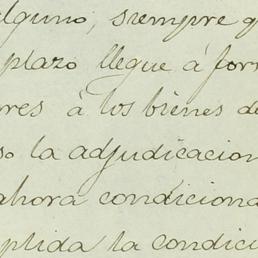 alguno, siempre q
plazo llegue á for
res á los bienes de
so la adjudicacion
ahora condiciona
plida la condici